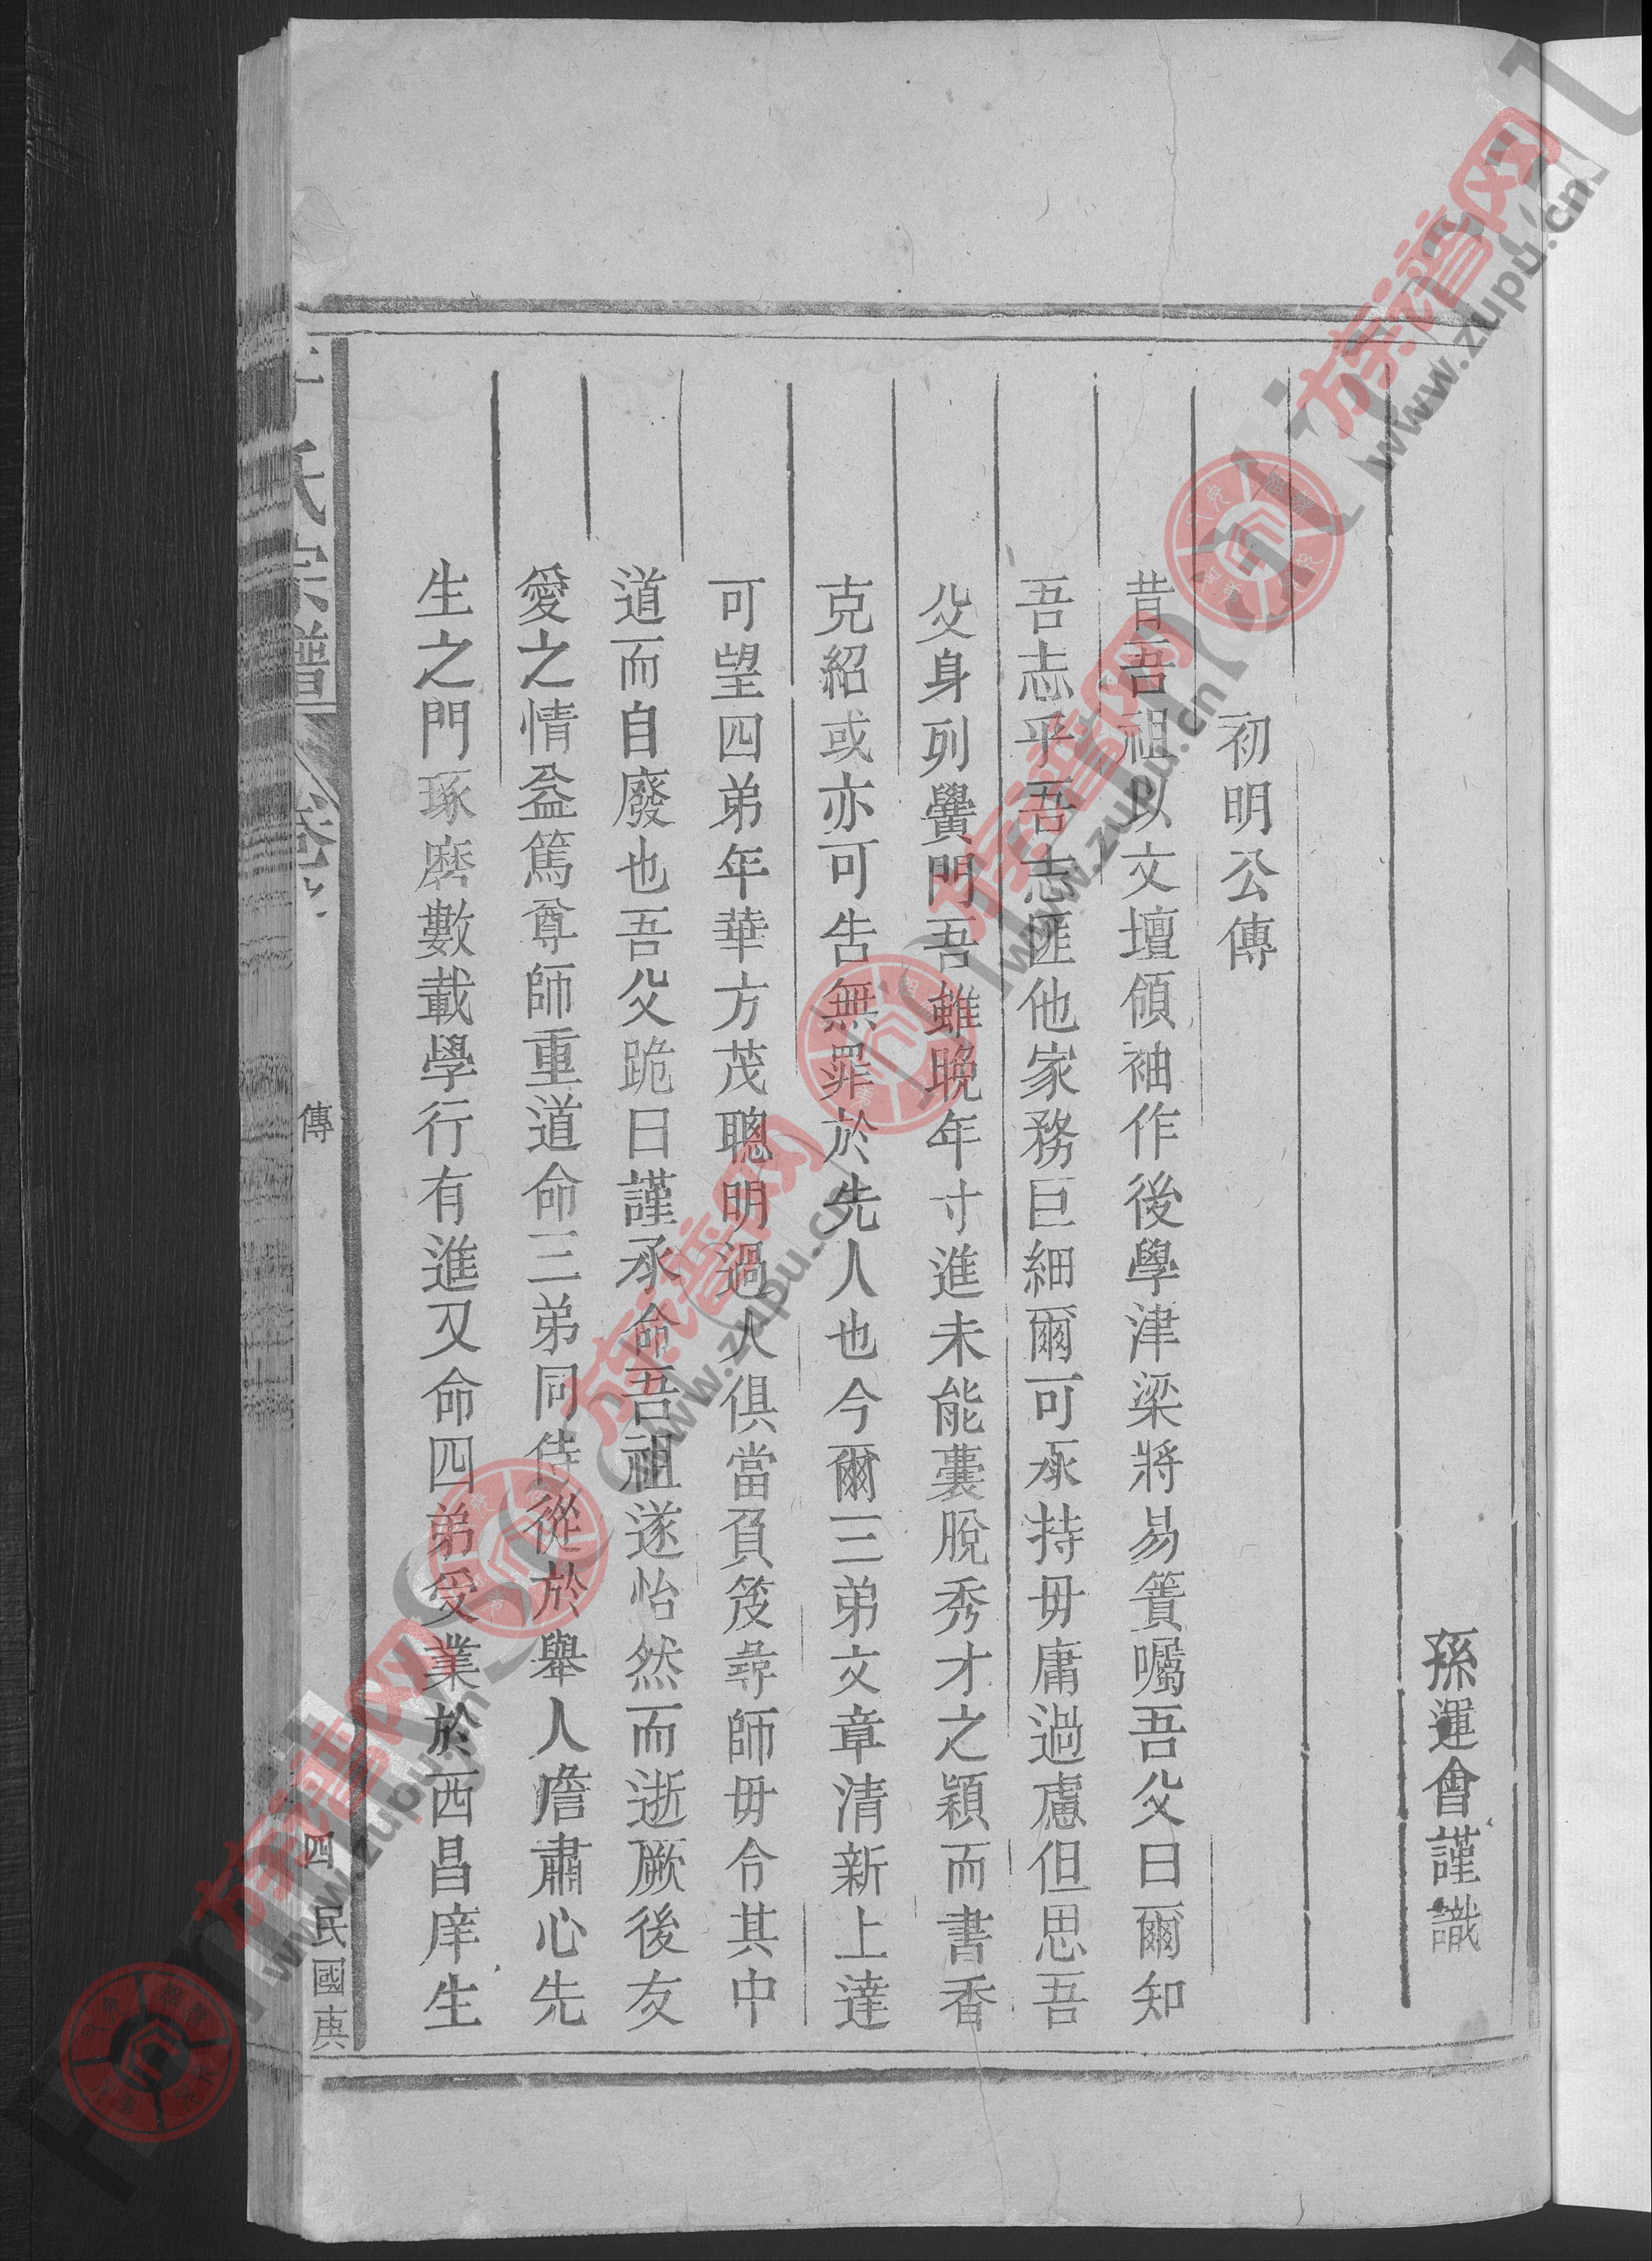 孫運會謹識
初明公傳
昔吾祖以文壇領袖作後學津梁將易簀囑吾父曰爾知
吾志乎吾志匪他家務巨細爾可承持毋庸過慮但思吾
父身列黌門吾雖晚年寸進未能囊脫秀才之穎而書香
克紹或亦可告無罪於先人也今爾三弟文章清新上達
可望四弟年華方茂聰明過人俱當負笈尋師毋令其中
道而自廢也吾父跪曰謹承命吾祖遂怡然而逝厥後友
愛之情益篤尊師重道命三弟同侍從於舉人詹肅心先
生之門琢磨數載學行有進又命四弟受業於西昌庠生
氏宗譜
傳
四
民國庚
族谱网
www.zupu.cn